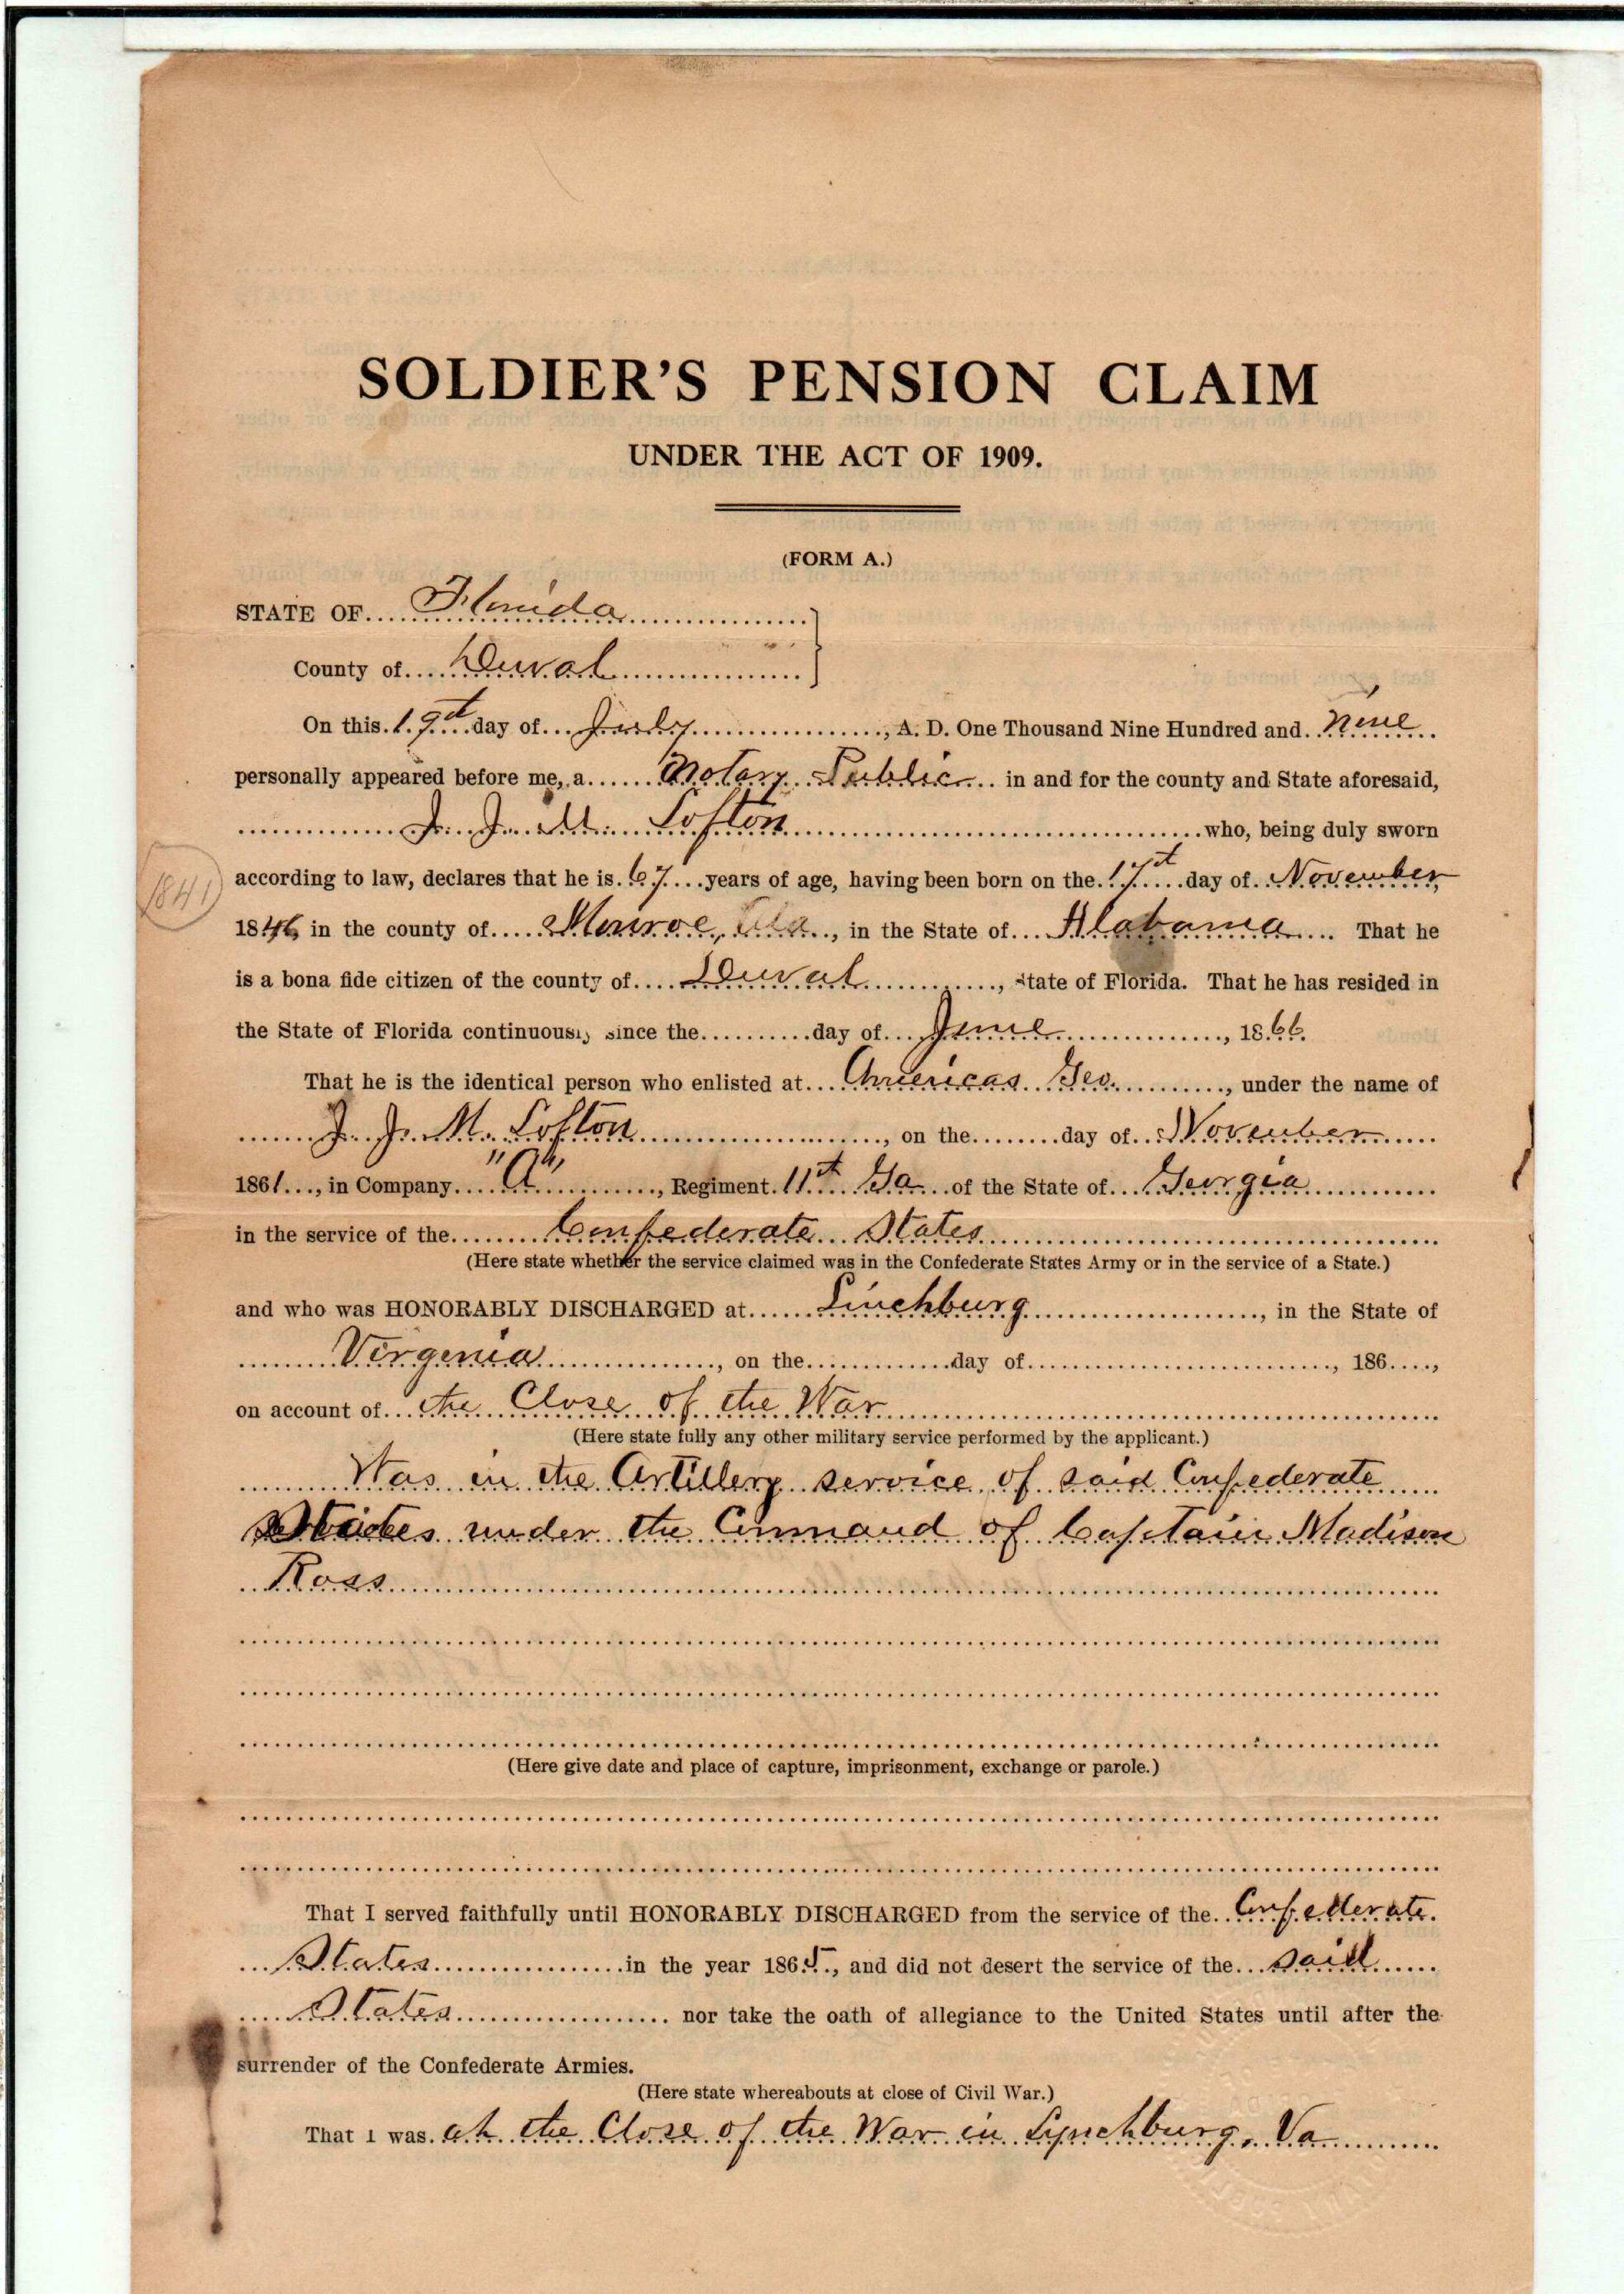 SOLDIER'S PENSION CLAIM
UNDER THE ACT OF 1909.
(FORM A.)
STATE OF Florida
County of Duval
On this 19th day of July, A. D. One Thousand Nine Hundred and nine
personally appeared before me, a Notary Public in and for the county and State aforesaid,
J. J. M. Lofton who, being duly sworn
1841
according to law, declares that he is 67 years of age, having been born on the 17th day of November
in the county of Monroe, Ala, in the State of Alabama That he
is a bona fide citizen of the county of Duval, State of Florida. That he has resided in
the State of Florida continuously since the day of June, 1866
That he is the identical person who enlisted at Americas Geo., under the name of
J. J. M. Lofton, on the day of November
1861, in Company "A", Regiment 11th Ga of the State of Georgia
in the service of the Confederate States
(Here state whether the service claimed was in the Confederate States Army or in the service of a State.)
and who was HONORABLY DISCHARGED at Linchburg, in the State of
Virgenia, on the day of, 186,
on account of the Close of the War
(Here state fully any other military service performed by the applicant.)
Was in the Artillery service of said Confederate
States under the Command of Captain Madison
Ross
(Here give date and place of capture, imprisonment, exchange or parole.)
That I served faithfully until HONORABLY DISCHARGED from the service of the Confederate
States in the year 1865, and did not desert the service of the said
States nor take the oath of allegiance to the United States until after the
surrender of the Confederate Armies.
(Here state whereabouts at close of Civil War.)
That I was at the Close of the War in Lynchburg, Va